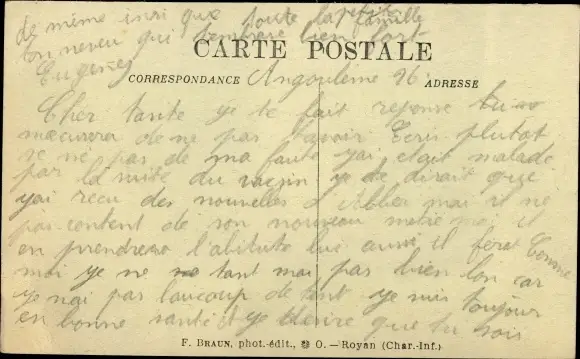 de même insi que toute la petite famille
ton neveu qui t'embrase bien fort
Eugène
CARTE POSTALE
CORRESPONDANCE Angoulême 26 ADRESSE
Cher tante ye te fait reponse tu
mecusera de ne pas t'avoir Ecris plutot
se né pas de ma faute yai etait malade
par la suite du vacsin ye te dirait que
yai recu des nouvelles d'Abber mai il ne
pas content de son nouveau metie mai il
en prendrera l'abitute lui aussi il feret comme
moi ye ne tant mai pas bien lon car
ye nai pas baucoup de temt ye suis toujour
en bonne santé et ye desire que tu sois
F. BRAUN, phot.-édit., O. — Royan (Char.-Inf.)